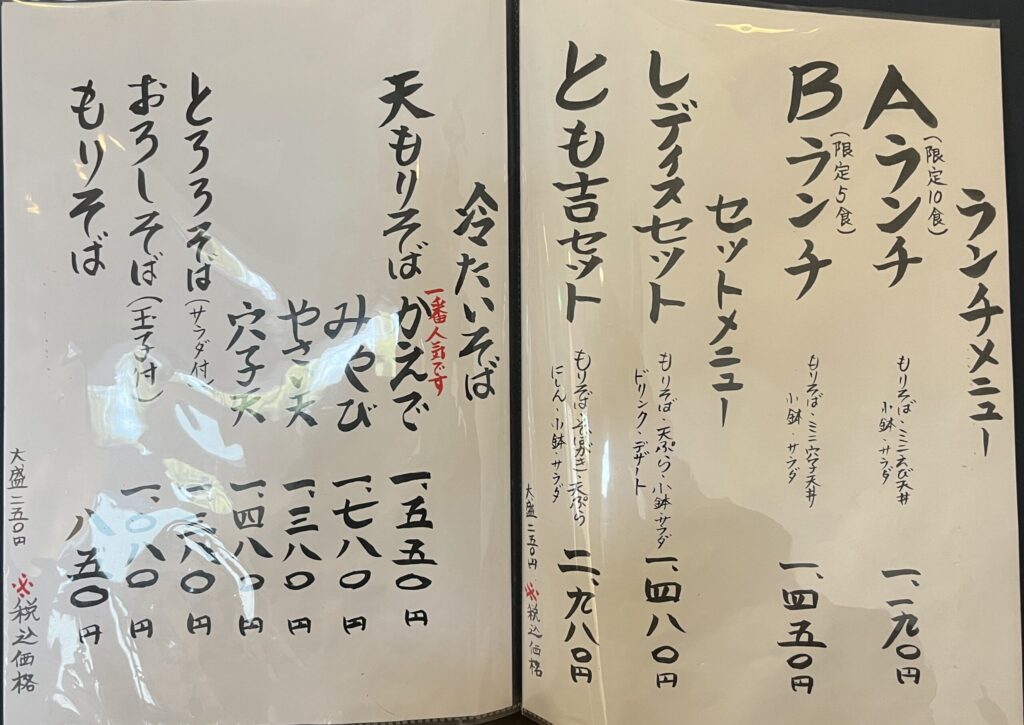 ランチメニュー
Aランチ
(限定10食)
もりそば・ミニえび天丼
小鉢・サラダ
一、一九〇円
Bランチ
(限定5食)
もりそば・ミニ穴子天丼
小鉢・サラダ
一、四五〇円
セットメニュー
レディスセット
もりそば・天ぷら・小鉢・サラダ
ドリンク・デザート
一、四八〇円
とも吉セット
もりそば・そばがき・天ぷら
にしん・小鉢・サラダ
二、九八〇円
大盛二五〇円 ※税込価格
冷たいそば
一番人気です
天もりそば かえで 一、五五〇円
みやび 一、七八〇円
やさい天 一、三八〇円
穴子天 一、四八〇円
とろろそば(サラダ付) 一、三八〇円
おろしそば(玉子付) 一、〇八〇円
もりそば 八五〇円
大盛二五〇円 ※税込価格